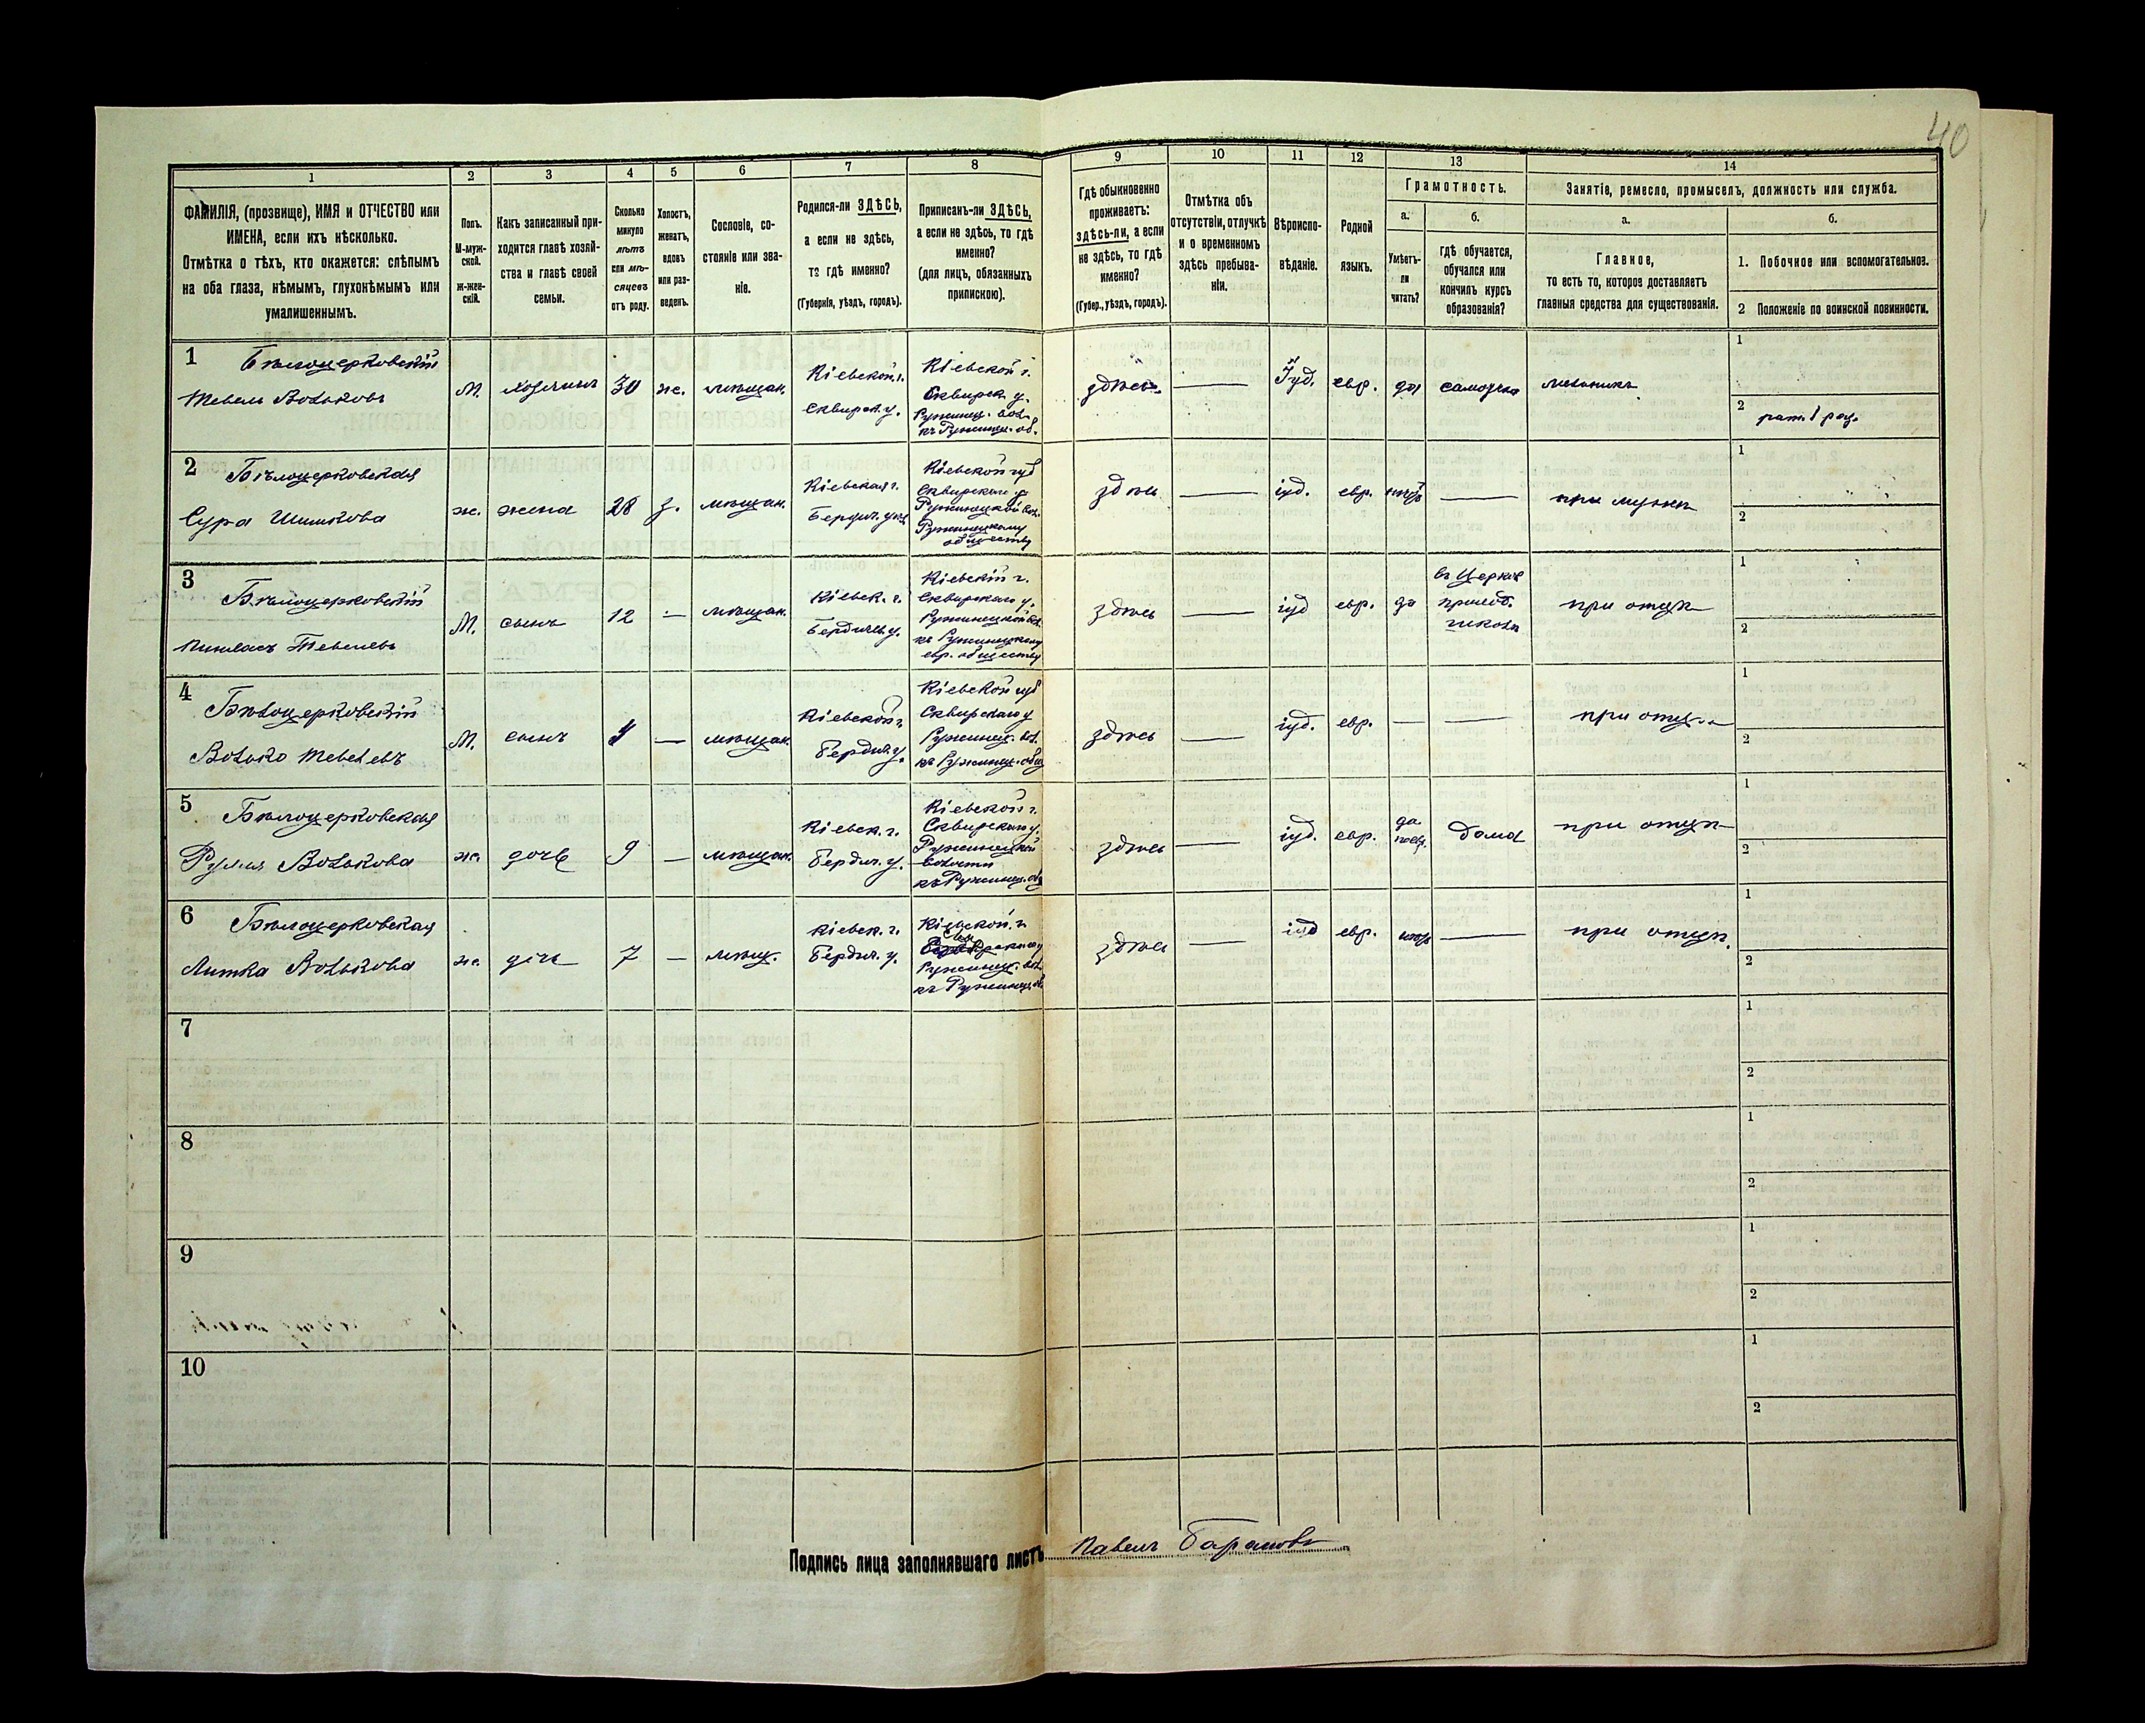 40
1
2
3
4
5
6
7
8
9
10
11
12
13
14
ФАМИЛІЯ, (прозвище), ИМЯ и ОТЧЕСТВО или
ИМЕНА, если ихъ нѣсколько.
Отмѣтка о тѣхъ, кто окажется: слѣпымъ
на оба глаза, нѣмымъ, глухонѣмымъ или
умалишеннымъ.
Полъ.
М-муж-
ской.
ж-жен-
скій.
Какъ записанный при-
ходится главѣ хозяй-
ства и главѣ своей
семьи.
Сколько
минуло
лѣтъ
или мѣ-
сяцевъ
отъ роду.
Холостъ,
женатъ,
вдовъ
или раз-
веденъ.
Сословіе, со-
стояніе или зва-
ніе.
Родился-ли ЗДѢСЬ,
а если не здѣсь,
то гдѣ именно?
(Губернія, уѣздъ, городъ).
Приписанъ-ли ЗДѢСЬ,
а если не здѣсь, то гдѣ
именно?
(для лицъ, обязанныхъ
припискою).
Гдѣ обыкновенно
проживаетъ:
здѣсь-ли, а если
не здѣсь, то гдѣ
именно?
(Губер., уѣздъ, городъ).
Отмѣтка объ
отсутствіи, отлучкѣ
и о временномъ
здѣсь пребыва-
ніи.
Вѣроиспо-
вѣданіе.
Родной
языкъ.
Грамотность.
а.
Умѣетъ-
ли
читать?
б.
гдѣ обучается,
обучался или
кончилъ курсъ
образованія?
Занятіе, ремесло, промыселъ, должность или служба.
а.
Главное,
то есть то, которое доставляетъ
главныя средства для существованія.
б.
1. Побочное или вспомогательное.
2 Положеніе по воинской повинности.
1
Бѣлоцерковскій
Тевель Вольковъ
М.
хозяинъ
30
ж.
мѣщан.
Кіевской г.
Сквирск. у.
Кіевской г.
Сквирск. у.
Ружинец. вол.
къ Ружинец. об.
здѣсь
Іуд.
евр.
да
самоучка
мельникъ
1
2
рат. 1 раз.
2
Бѣлоцерковская
Сура Шимкова
ж.
жена
28
з.
мѣщан.
Кіевская г.
Бердич. у.
Кіевской губ
Сквирскаго у
Ружинецкой вол.
Ружинецкому
обществу
здѣсь
іуд.
евр.
при мужѣ
1
2
3
Бѣлоцерковскій
Тевелевъ
М.
сынъ
12
—
мѣщан.
Кіевск. г.
Бердичев. у.
Кіевскій г.
Сквирскаго у.
Ружинецкой вол.
къ Ружинецкому
евр. обществу
здѣсь
іуд
евр.
да
въ Церков
приход.
школѣ
при отцѣ
1
2
4
Бѣлоцерковскій
Волько Тевелевъ
М.
сынъ
—
мѣщан.
Кіевской г
Бердич. у.
Кіевской губ
Сквирскаго у
Ружинец. вол.
къ Ружинец. общ
здѣсь
іуд.
евр.
—
при отцѣ
1
2
5
Бѣлоцерковская
Волькова
ж.
дочь
9
—
мѣщан.
Кіевск. г.
Бердич. у.
Кіевской г.
Сквирскаго у.
Ружинецкой
волости
къ Ружинец. об
здѣсь
іуд.
евр.
да
дома
при отцѣ
1
2
6
Бѣлоцерковская
Волькова
ж.
дочь
7
—
мѣщ.
Кіевск. г.
Бердич. у.
Кіевской г.
Ружинец. вол.
къ Ружинец. об
здѣсь
іуд
евр.
при отцѣ.
1
2
7
1
2
8
1
2
9
1
2
10
1
2
Подпись лица заполнявшаго листъ Павелъ Барановъ